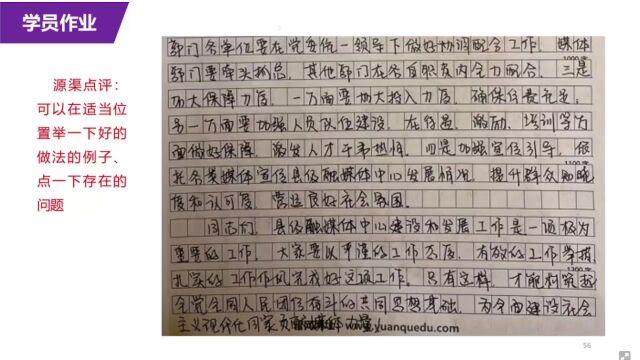 学员作业
源渠点评:
可以在适当位
置举一下好的
做法的例子、
点一下存在的
问题
部门各单位要在党委统一领导下做好协调配合工作。媒体
1000字
部门要牵头抓总,其他部门在各自职责内全力配合。三是
加大保障力度。一方面要加大投入力度,确保经费充足。
另一方面要加强人员队伍建设,在待遇、激励、培训等方
面做好保障,激发人才干事热情。四是加强宣传引导。依
1100字
托各类媒体宣传县级融媒体中心发展情况,提升群众知晓
度和认可度,营造良好社会氛围。
同志们,县级融媒体中心建设和发展工作是一项极为
重要的工作,大家要以严谨的工作态度,有效的工作举措,
1200字
扎实的工作作风完成好这项工作。只有这样,才能构筑起
全党全国人民团结奋斗的共同思想基础,为全面建设社会
主义现代化国家贡献媒体力量。
www.yuanquedu.com
56